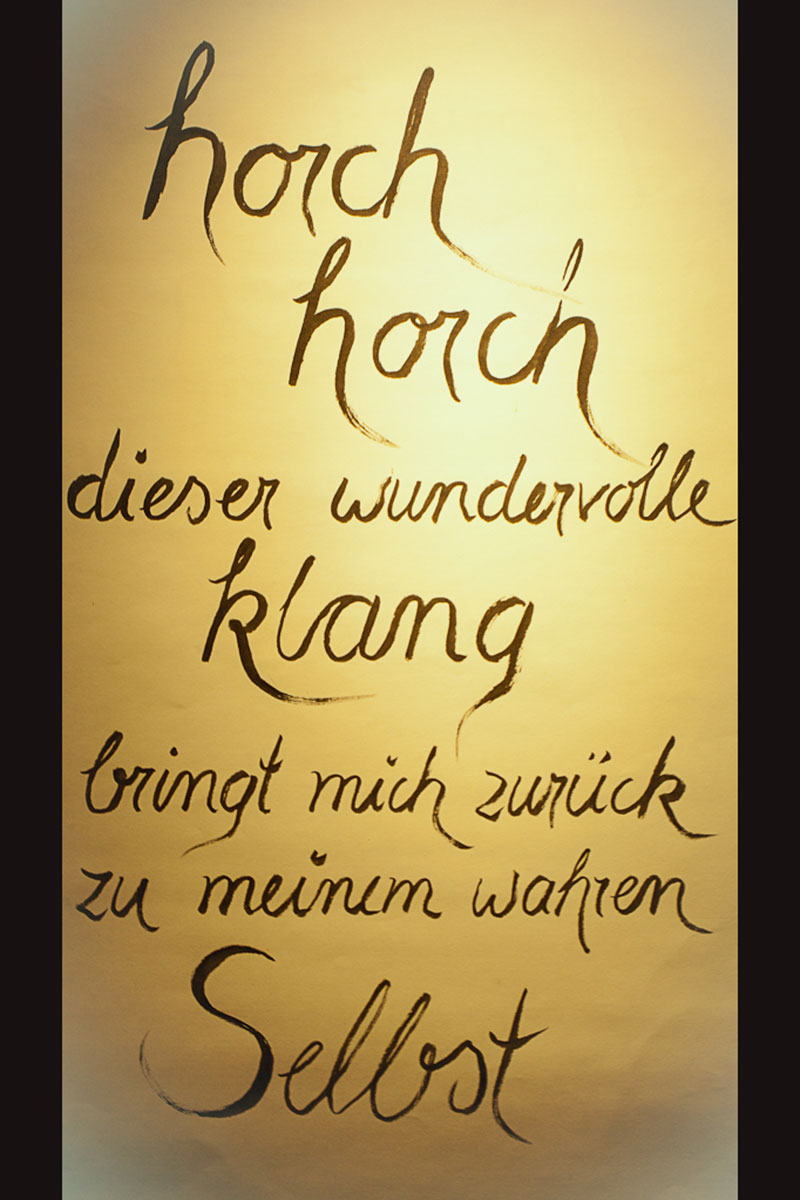 horch
horch
dieser wundervolle
klang
bringt mich zurück
zu meinem wahren
Selbst